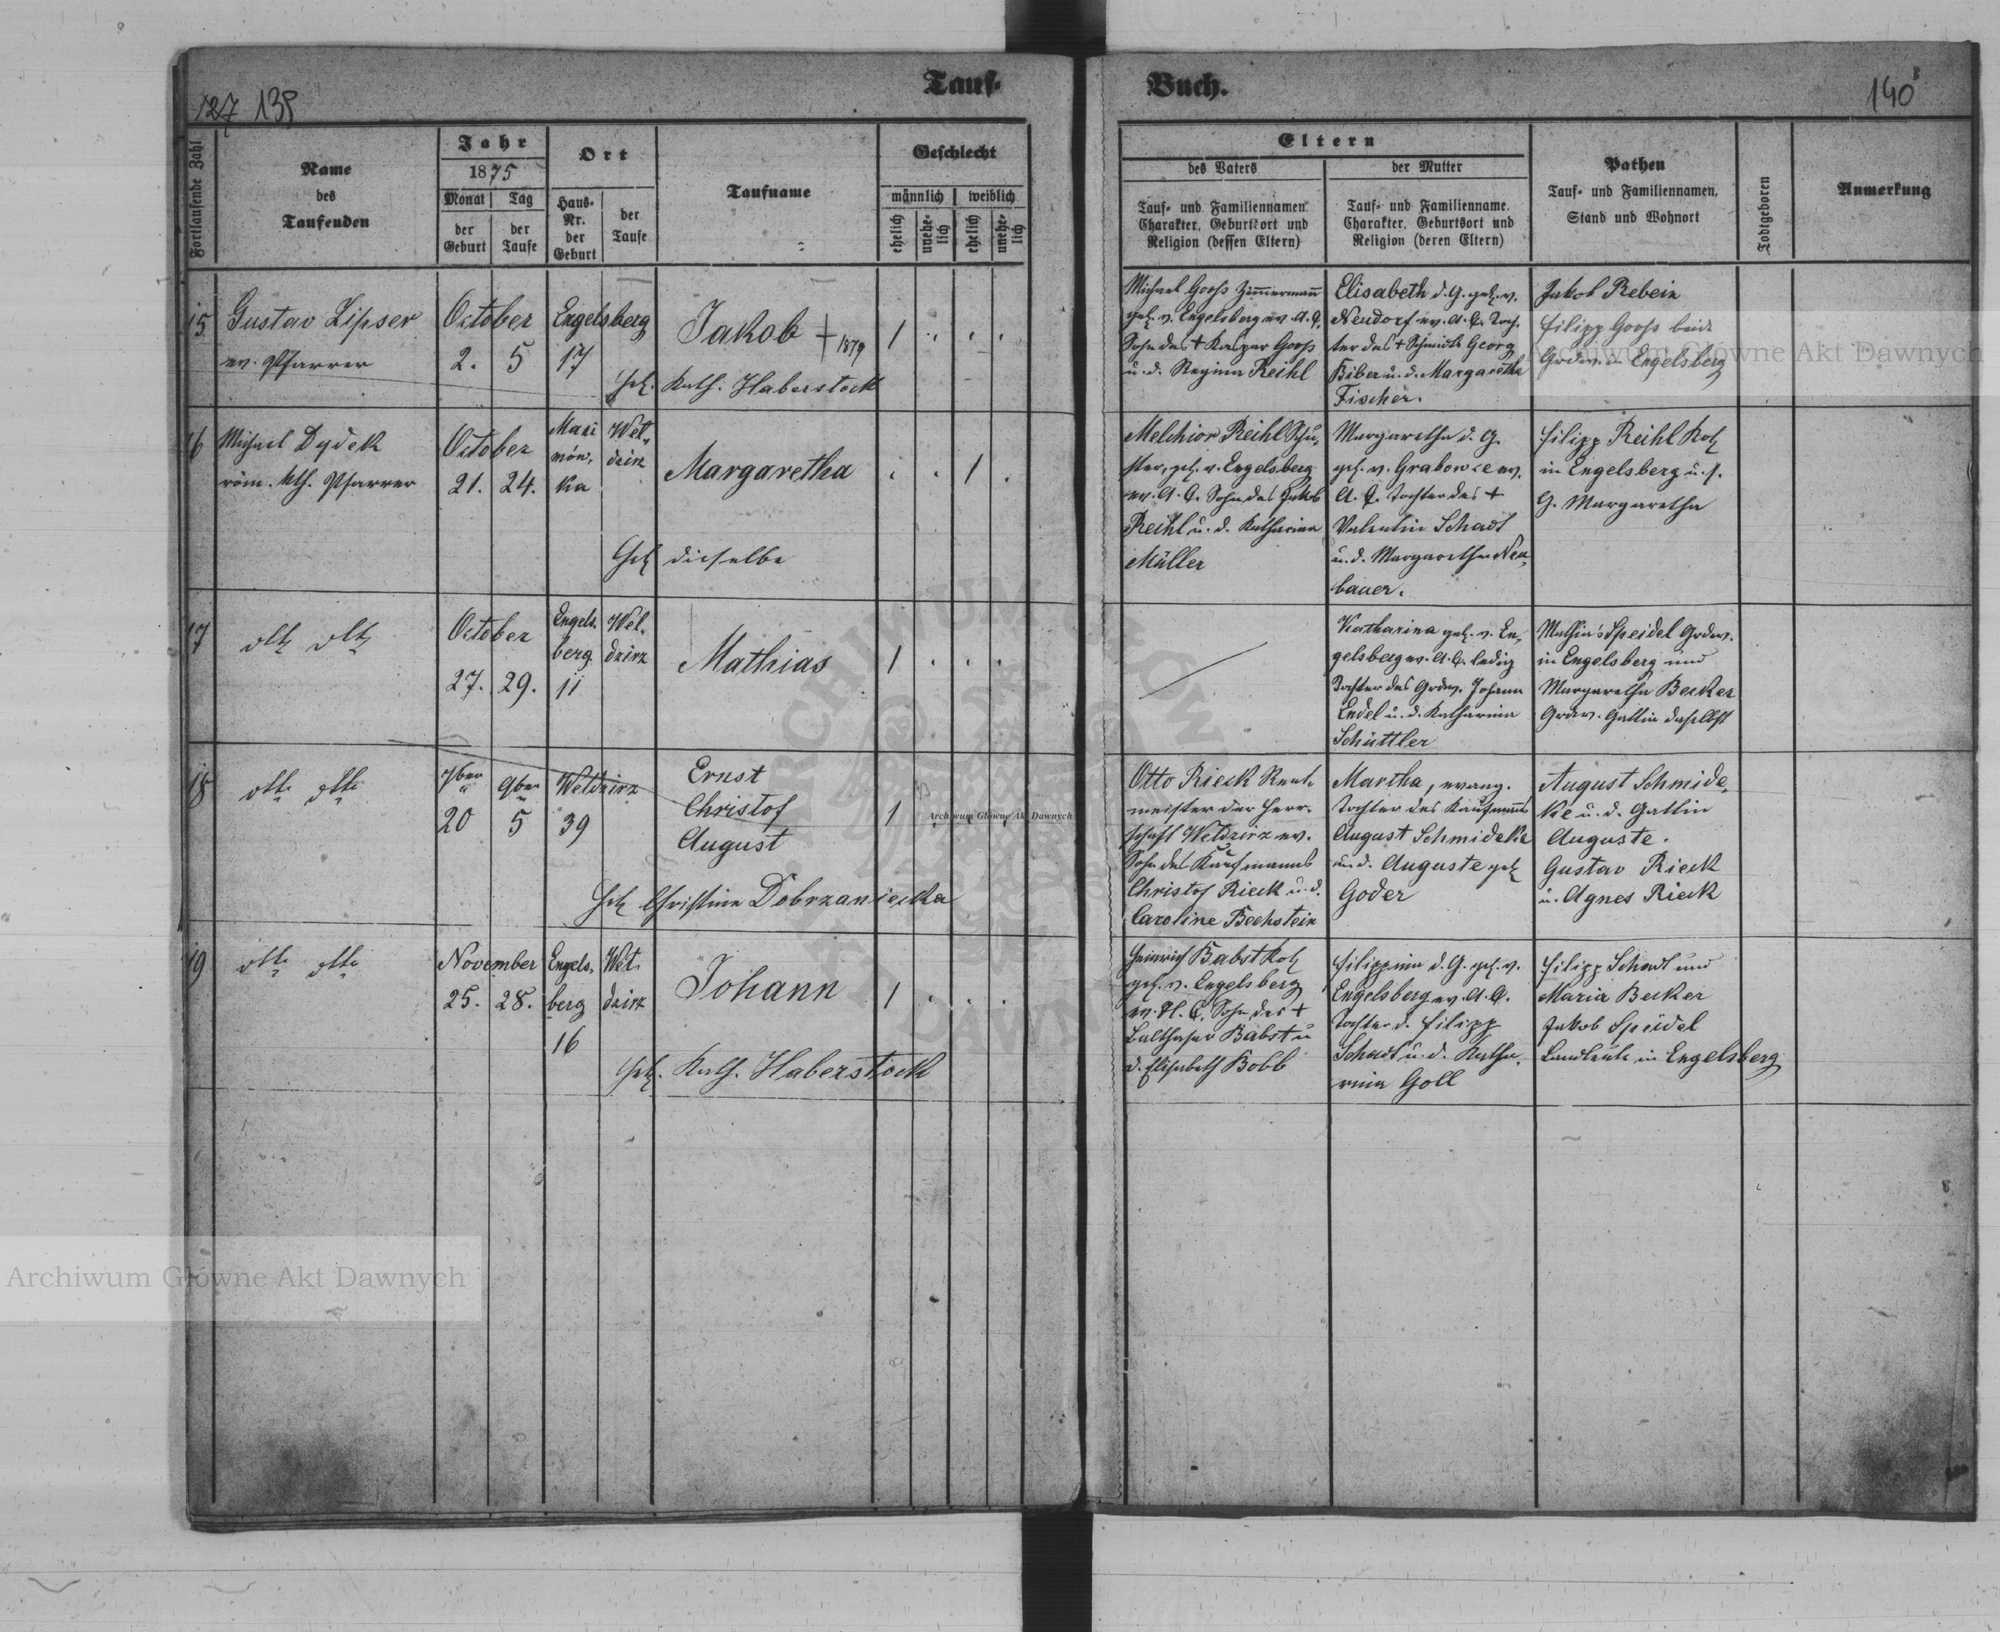 Tauf-
Buch.
127 139
140
Fortlaufende Zahl
Name
des
Taufenden
Jahr
1875
Monat
Tag
der
Geburt
der
Taufe
Ort
Haus-
Nr.
der
Geburt
der
Taufe
Taufname
Geschlecht
männlich
weiblich
ehelich
unehe-
lich
ehelich
unehe-
lich
Eltern
des Vaters
der Mutter
Tauf- und Familiennamen
Charakter, Geburtsort und
Religion (dessen Eltern)
Tauf- und Familienname.
Charakter, Geburtsort und
Religion (deren Eltern)
Pathen
Tauf- und Familiennamen,
Stand und Wohnort
Todtgeboren
Anmerkung
15
Gustav Lipser
ev. Pfarrer
October
2. 5
Engelsberg
17
Jakob + 1879
Geb. Kath. Haberstock
1 . . .
Michael Gooss Zimmermann
geb. v. Engelsberg ev. A. C.
Sohn des + Kaspar Gooss
u. d. Regina Reihl
Elisabeth d. G. geb. v.
Neudorf ev. A. C. Toch-
ter des + Schmieds Georg
Biber u. d. Margaretha
Fischer.
Jakob Rebein
Filipp Gooss beide
Grdw. in Engelsberg
16
Michael Dydek
röm. kth. Pfarrer
October
21. 24.
Mazi
mów,
ka
Wel-
dzirz
Margaretha
Geb dieselbe
. . 1 .
Melchior Reihl Schu-
ster, geb. v. Engelsberg
ev. A. C. Sohn des Jakob
Reihl u. d. Katharina
Müller
Margaretha d. G.
geb. v. Grabowce ev.
A. C. Tochter des +
Valentin Schadt
u. d. Margaretha Neu-
bauer.
Filipp Reihl Kol
in Engelsberg u. s.
G. Margaretha
17
dtto dtto
October
27. 29.
Engels-
berg
11
Wel-
dzirz
Mathias
1 . . .
Katharina geb. v. En-
gelsberg ev. A. C. ledig
Tochter des Grdw. Johann
Endel u. d. Katharina
Schüttler
Mathias Speidel Grdw.
in Engelsberg und
Margaretha Becker
Grdw. Gattin daselbst
18
dtto dtto
7ber 9ber
20 5
Weldzirz
39
Ernst
Christof
August
Geb Christine Dobrzaniecka
1 . . .
Otto Rieck Rent-
meister der Herr-
schaft Weldzirz ev.
Sohn des Kaufmanns
Christof Rieck u. d.
Caroline Bechstein
Martha, evang.
Tochter des Kaufmanns
August Schmidecke
u. d. Auguste geb
Goder
August Schmide-
ke u. d. Gattin
Auguste.
Gustav Rieck
u. Agnes Rieck
19
dtto dtto
November
25. 28.
Engels-
berg
16
Wel-
dzirz
Johann
Geb. Kath. Haberstock
1 . . .
Heinrich Babst Kol
geb. v. Engelsberg
ev. A. C. Sohn des +
Balthasar Babst u
d. Elisabeth Bobb
Filippina d. G. geb. v.
Engelsberg ev. A. C.
Tochter d. Filipp
Schadt u. d. Katha-
rina Goll
Filipp Schadt und
Maria Becker
Jakob Speidel
Landleute in Engelsberg
Archiwum Główne Akt Dawnych
Archiwum Główne Akt Dawnych
Archiwum Główne Akt Dawnych